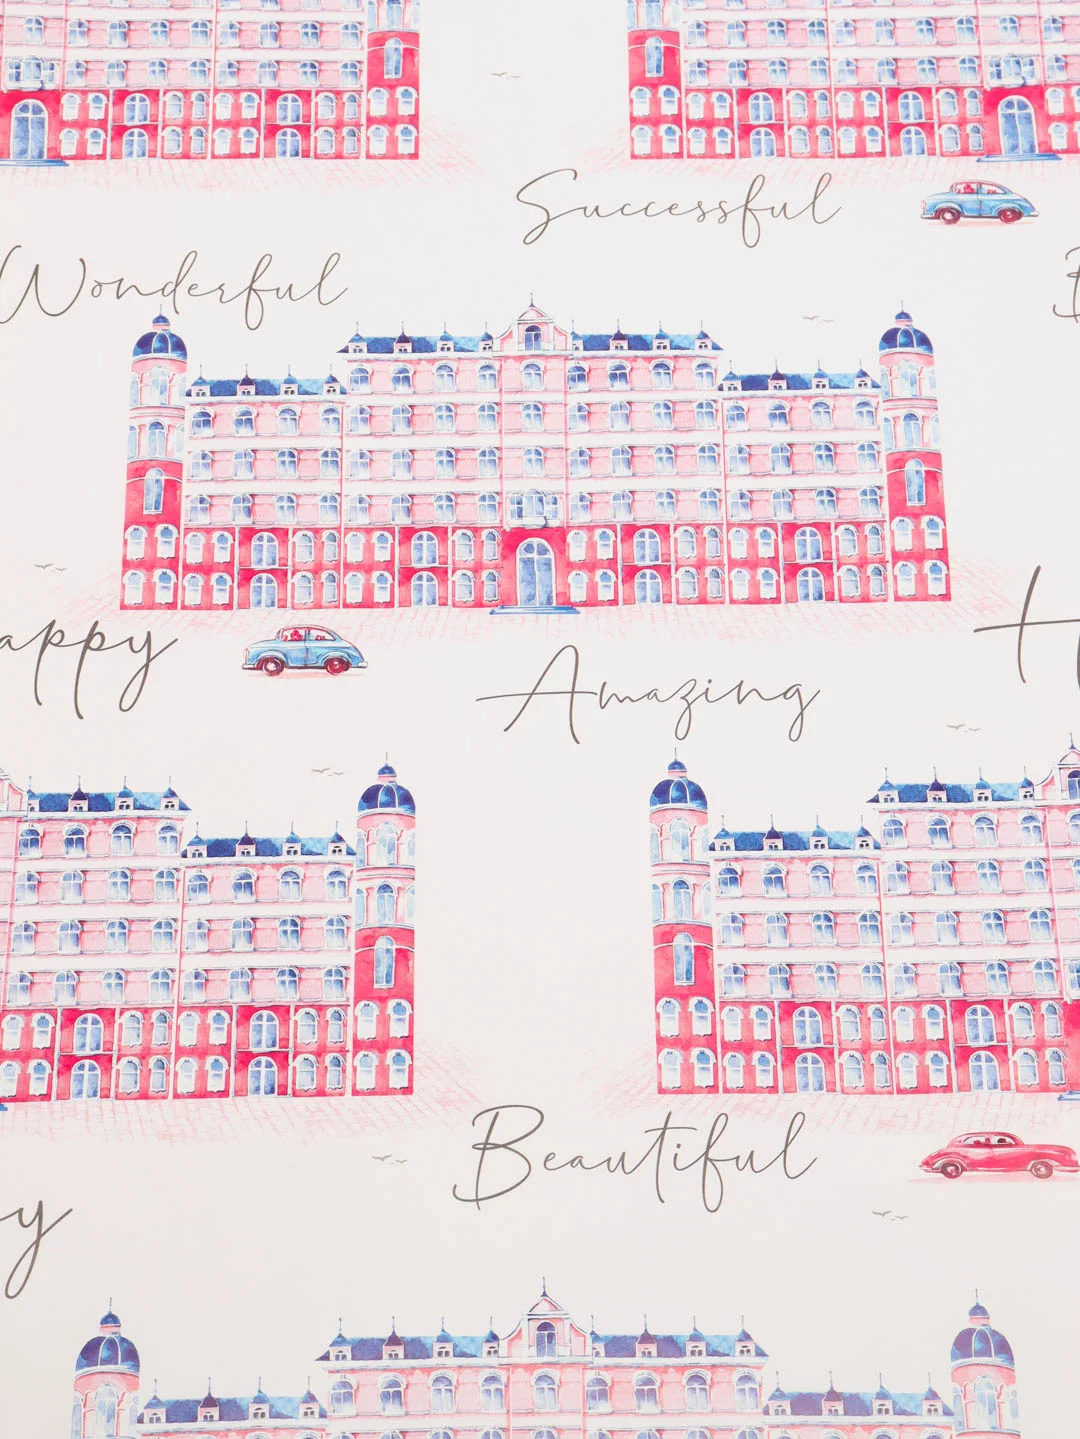 Successful
Wonderful
appy
Amazing
Beautiful
y